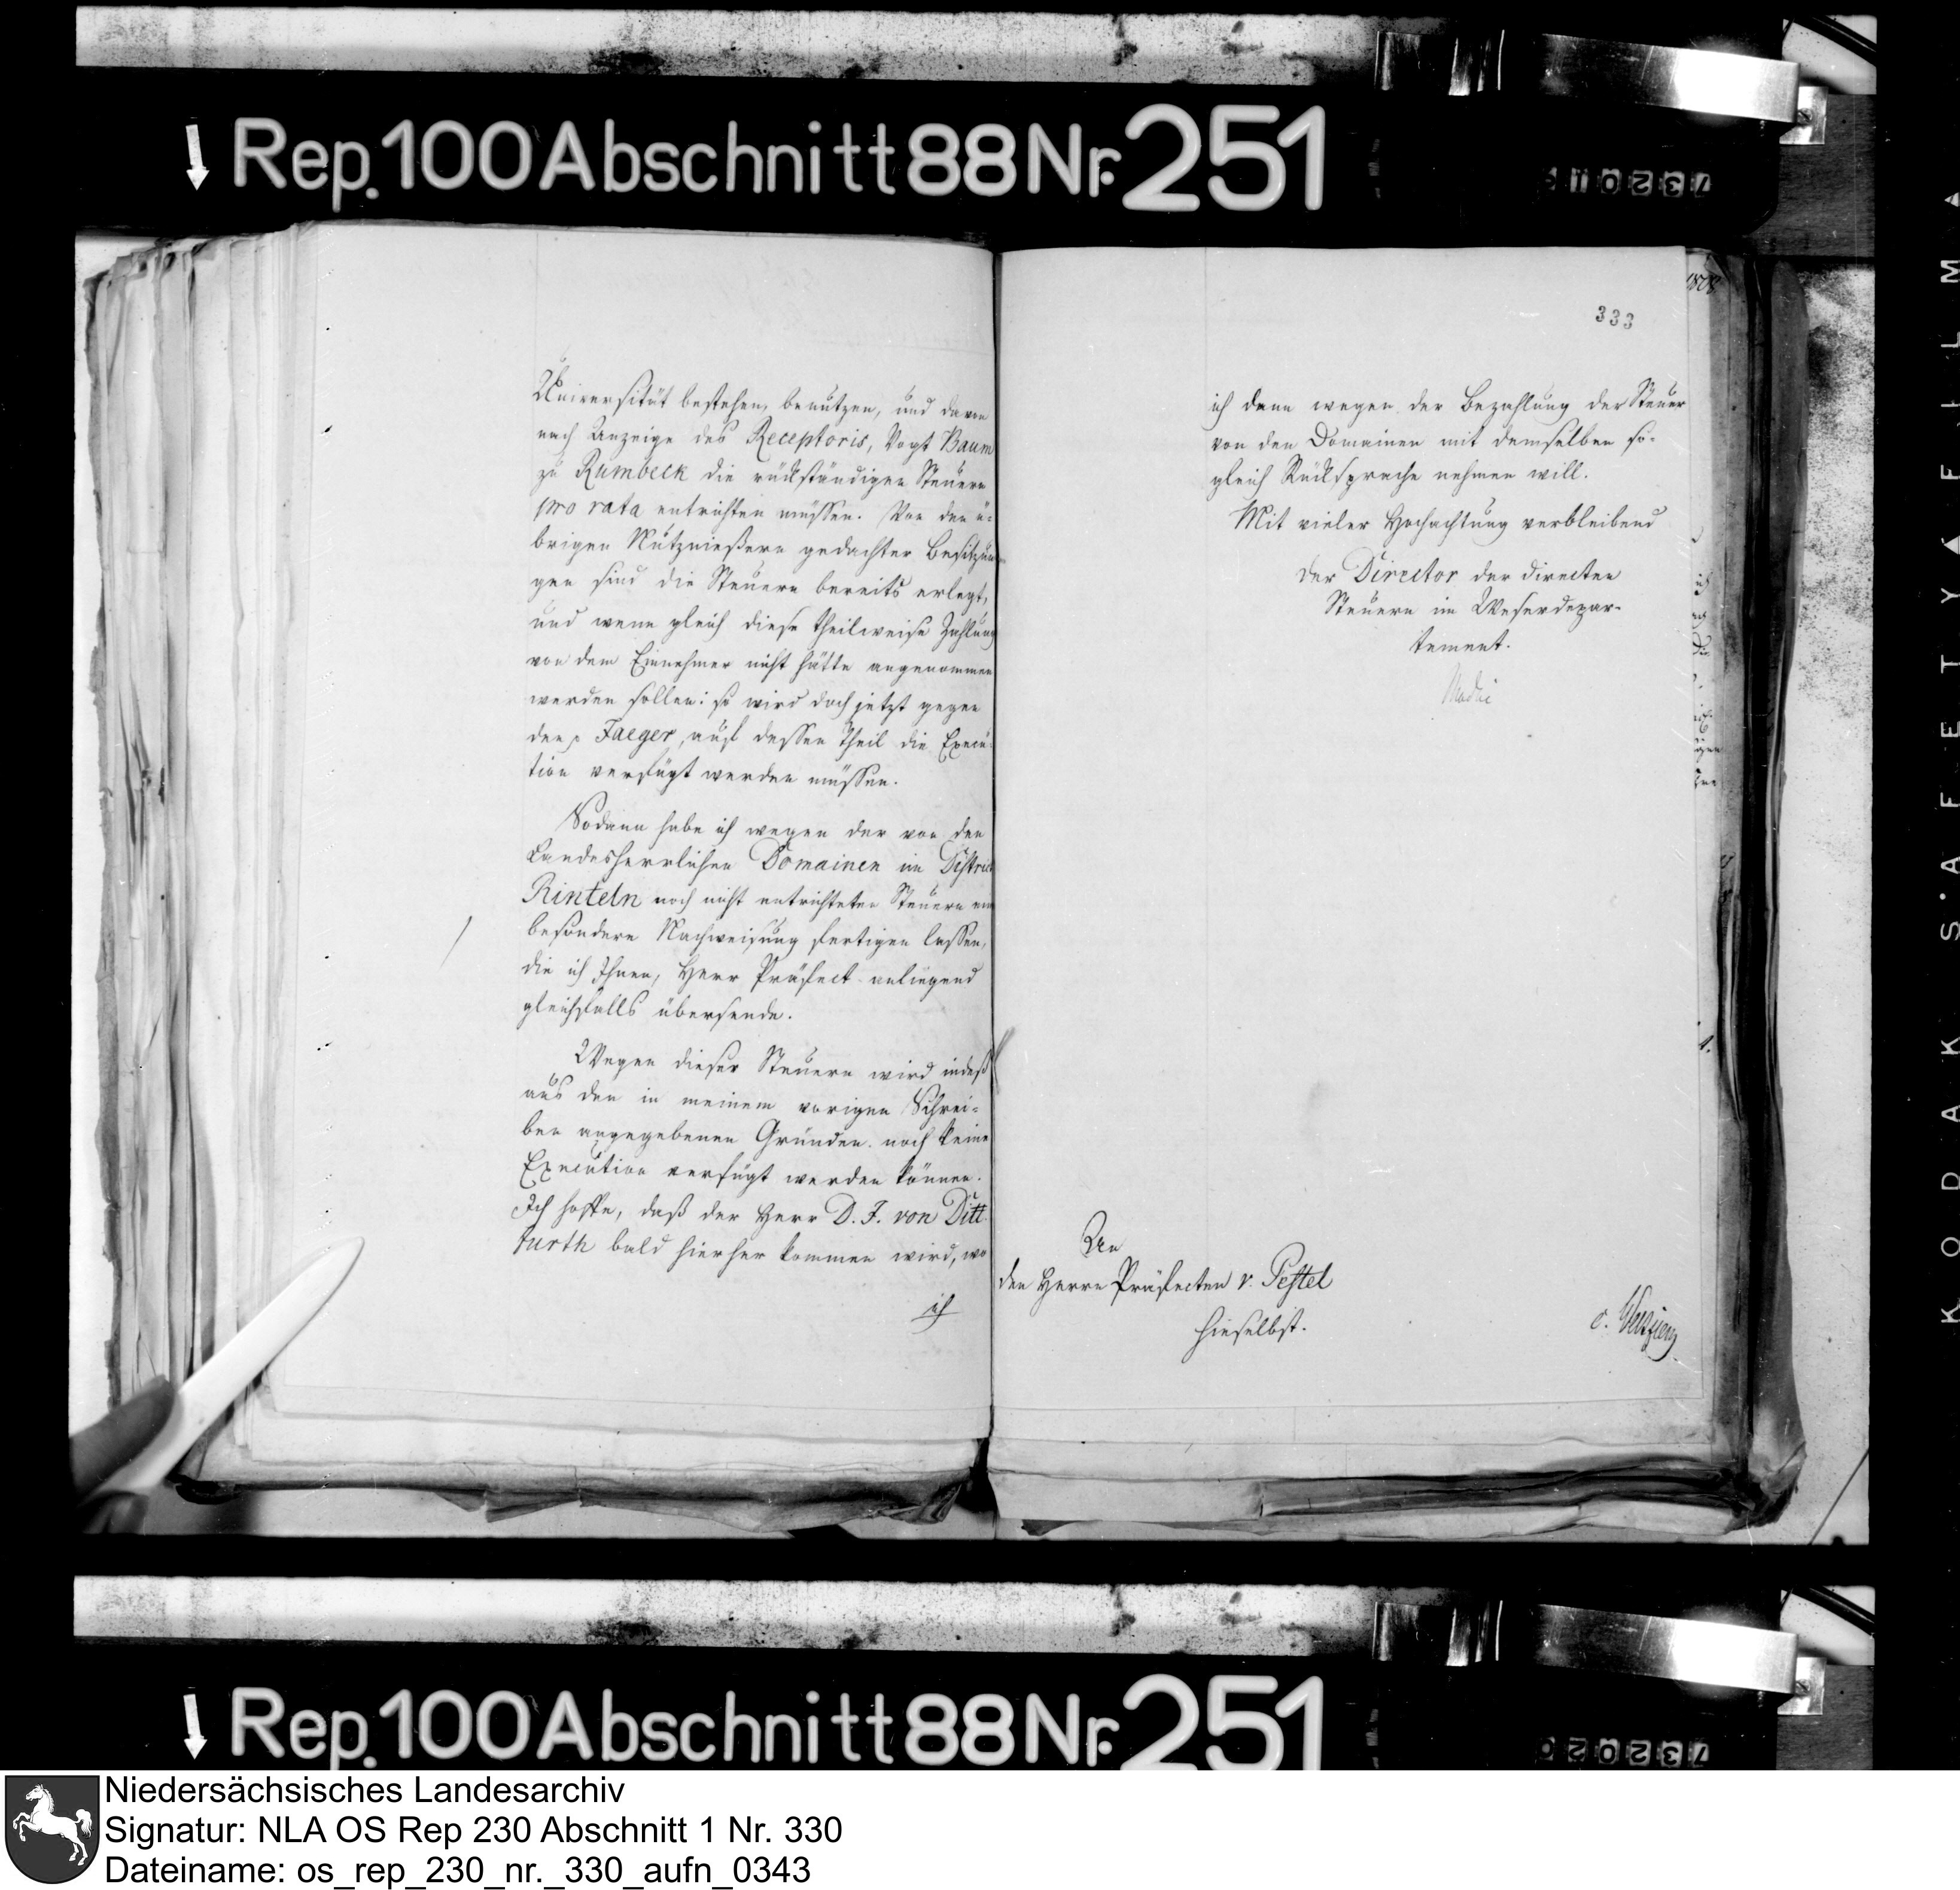 Rep. 100 Abschnitt 88 Nr. 251
Universität bestehen, benutzen, und davon
nach Anzeige des Receptoris, Vogt Baum
zu Rumbeck die rückständigen Steuern
pro rata entrichten müssen. Von den ü-
brigen Nutznießern gedachter Besitzun
gen sind die Steuern bereits erlegt,
und wenn gleich diese theilweise Zahlung
von dem Einnehmer nicht hätte angenommen
werden sollen: so wird doch jetzt gegen
den p Jaeger, auf dessen Theil die Execu-
tion verfügt werden müssen.
Sodann habe ich wegen der von den
Landesherrlichen Domainen im District
Rinteln noch nicht entrichteten Steuern
besondere Nachweisung fertigen lassen,
die ich Ihnen, Herr Präfect anliegend
gleichfalls übersende.
Wegen dieser Steuern wird indeß
aus den in meinem vorigen Schrei-
ben angegebenen Gründen noch keine
Execution verfügt werden können.
Ich hoffe, daß der Herr D. J. von Ditt
furth bald hierher kommen wird, wo
ich
333
ich dann wegen der Bezahlung der Steuer
von den Domainen mit demselben so-
gleich Rücksprache nehmen will.
Mit vieler Hochachtung verbleibend
der Director der directen
Steuern im Weserdepar-
tement.
An
den Herrn Präfecten v. Pestel
hieselbst.
KODAK SAFETY FILM
Rep. 100 Abschnitt 88 Nr. 251
Niedersächsisches Landesarchiv
Signatur: NLA OS Rep 230 Abschnitt 1 Nr. 330
Dateiname: os_rep_230_nr._330_aufn_0343